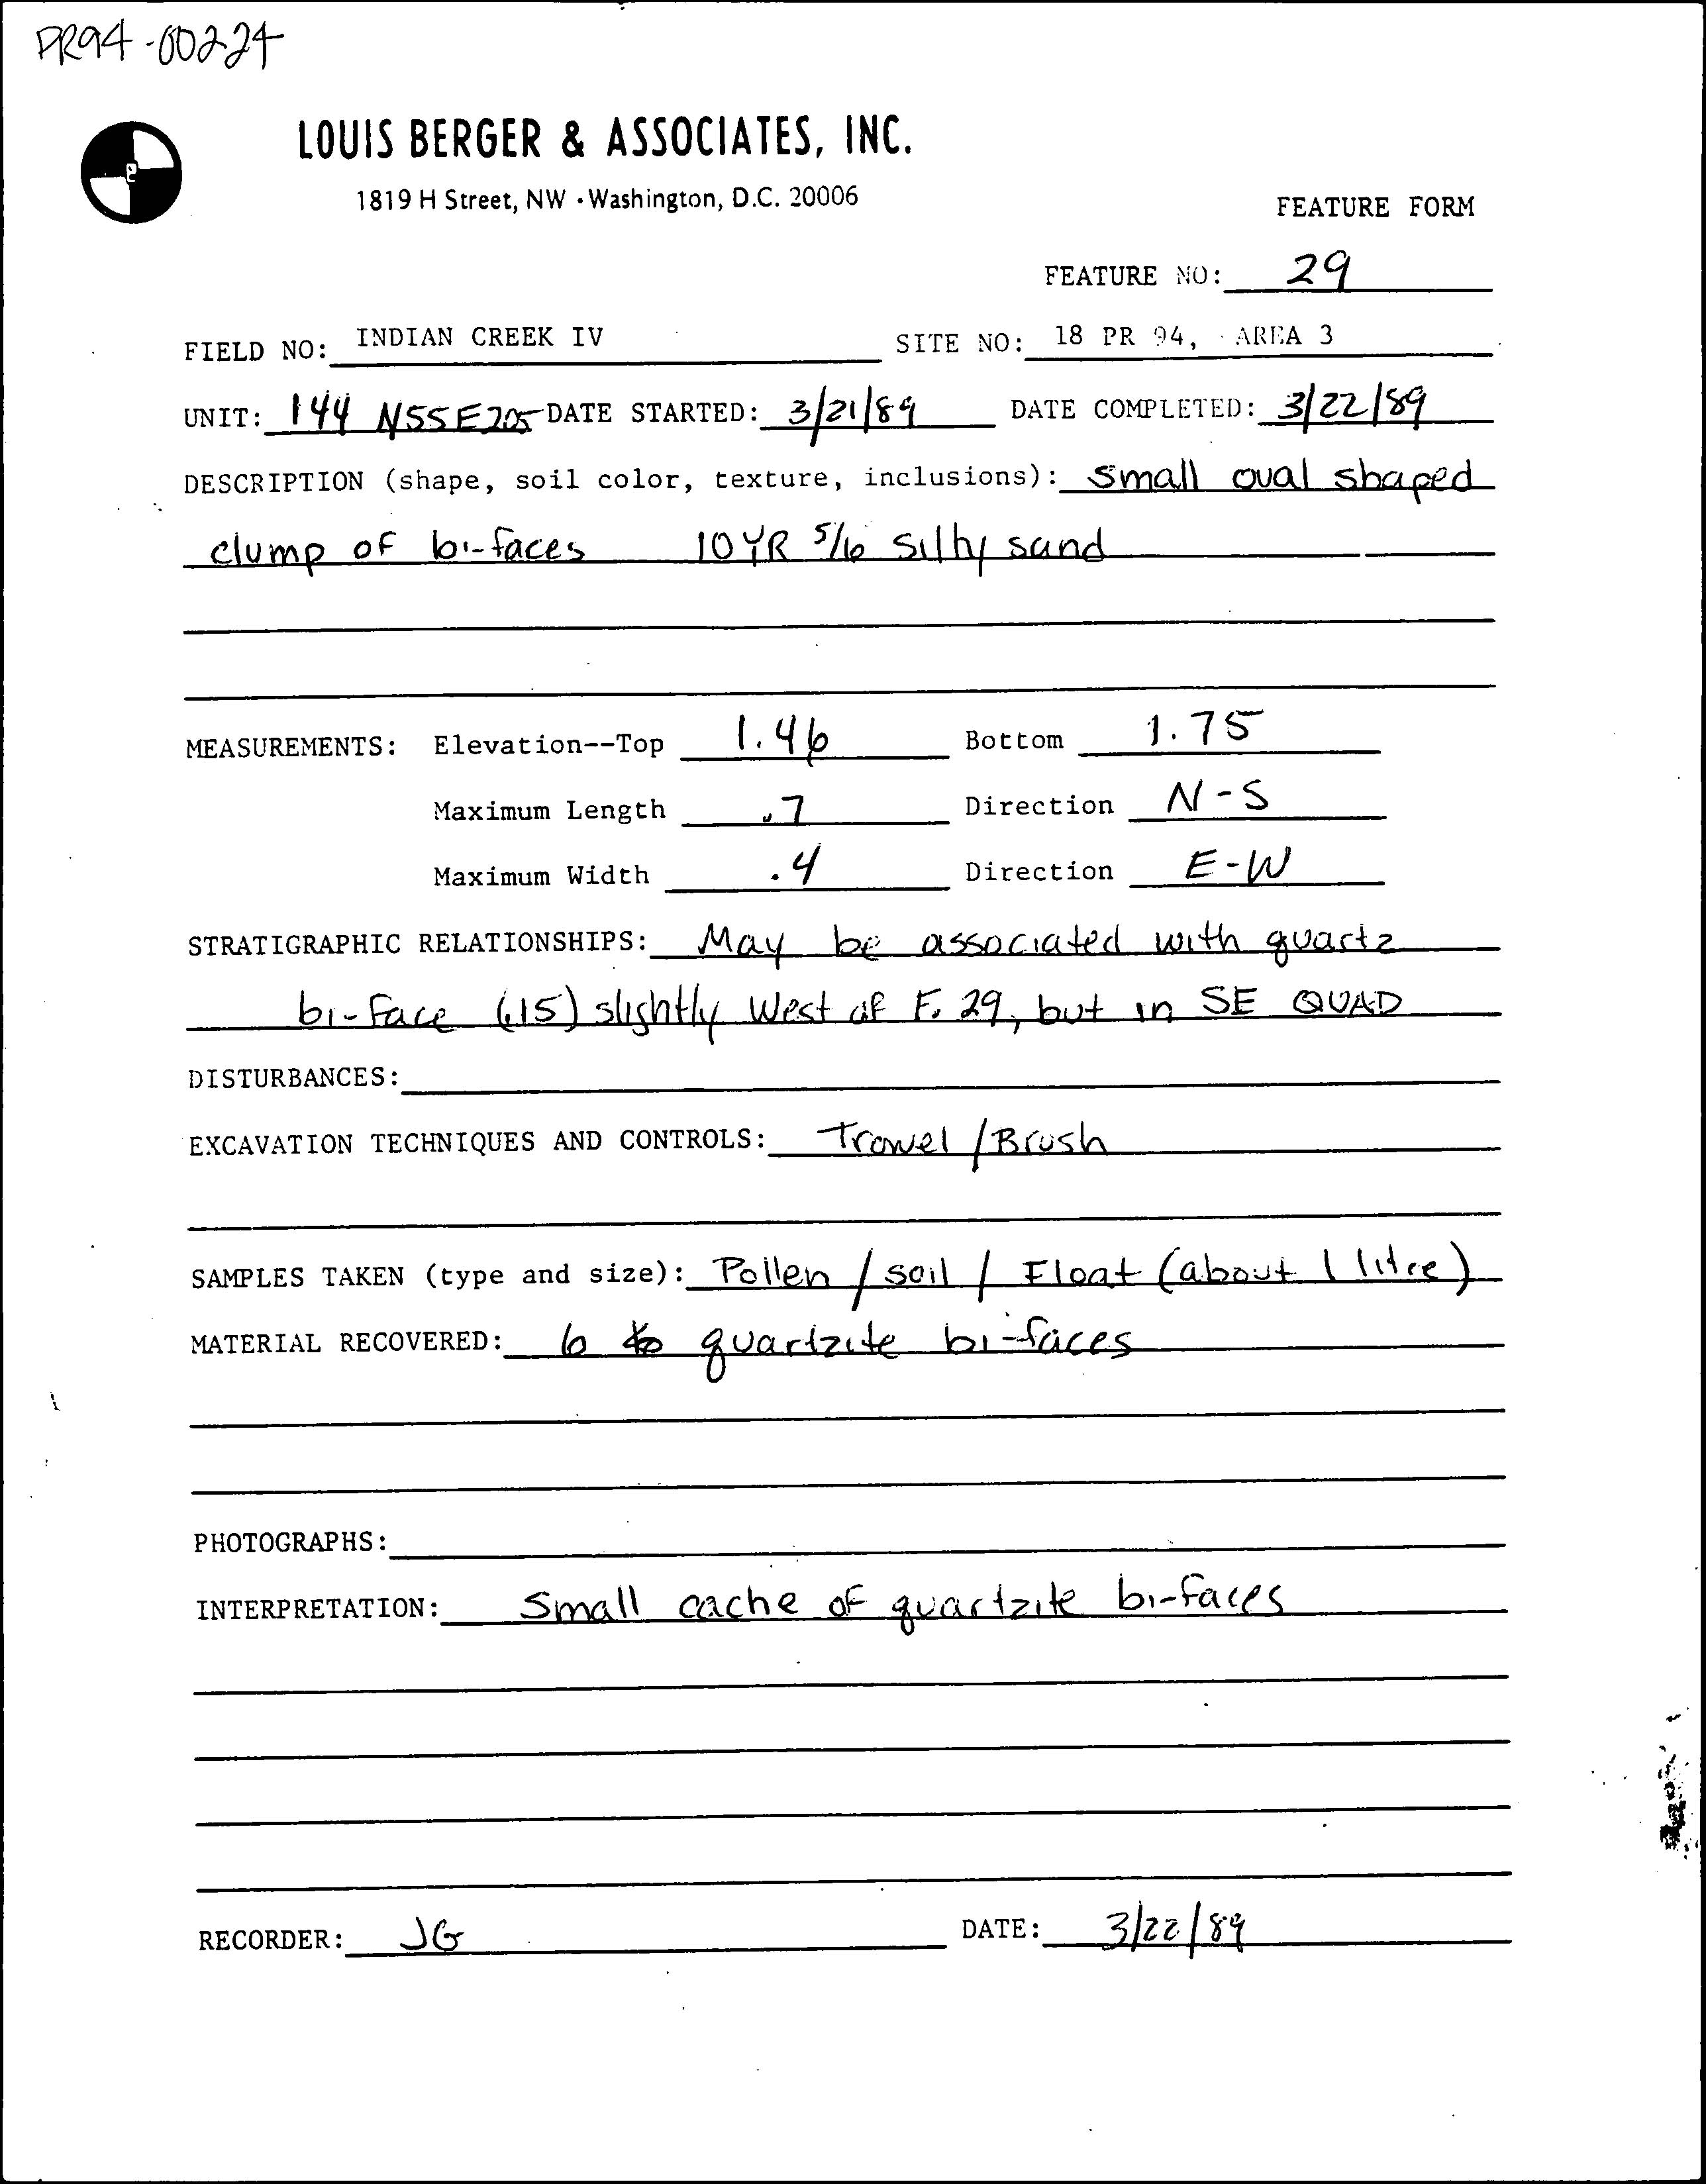 PR94-00224
LOUIS BERGER & ASSOCIATES, INC.
1819 H Street, NW • Washington, D.C. 20006
FEATURE FORM
FEATURE NO: 29
FIELD NO: INDIAN CREEK IV SITE NO: 18 PR 94, AREA 3
UNIT: 144 N55E205 DATE STARTED: 3/21/89 DATE COMPLETED: 3/22/89
DESCRIPTION (shape, soil color, texture, inclusions): small oval shaped
clump of bi-faces 10YR 5/6 Silty sand
MEASUREMENTS: Elevation--Top 1.46 Bottom 1.75
Maximum Length .7 Direction N-S
Maximum Width .4 Direction E-W
STRATIGRAPHIC RELATIONSHIPS: May be associated with quartz
bi-face (.15) slightly West of F. 29, but in SE QUAD
DISTURBANCES:
EXCAVATION TECHNIQUES AND CONTROLS: Trowel / Brush
SAMPLES TAKEN (type and size): Pollen / soil / Float (about 1 litre)
MATERIAL RECOVERED: 6 quartzite bi-faces
PHOTOGRAPHS:
INTERPRETATION: Small cache of quartzite bi-faces
RECORDER: JG DATE: 3/22/89